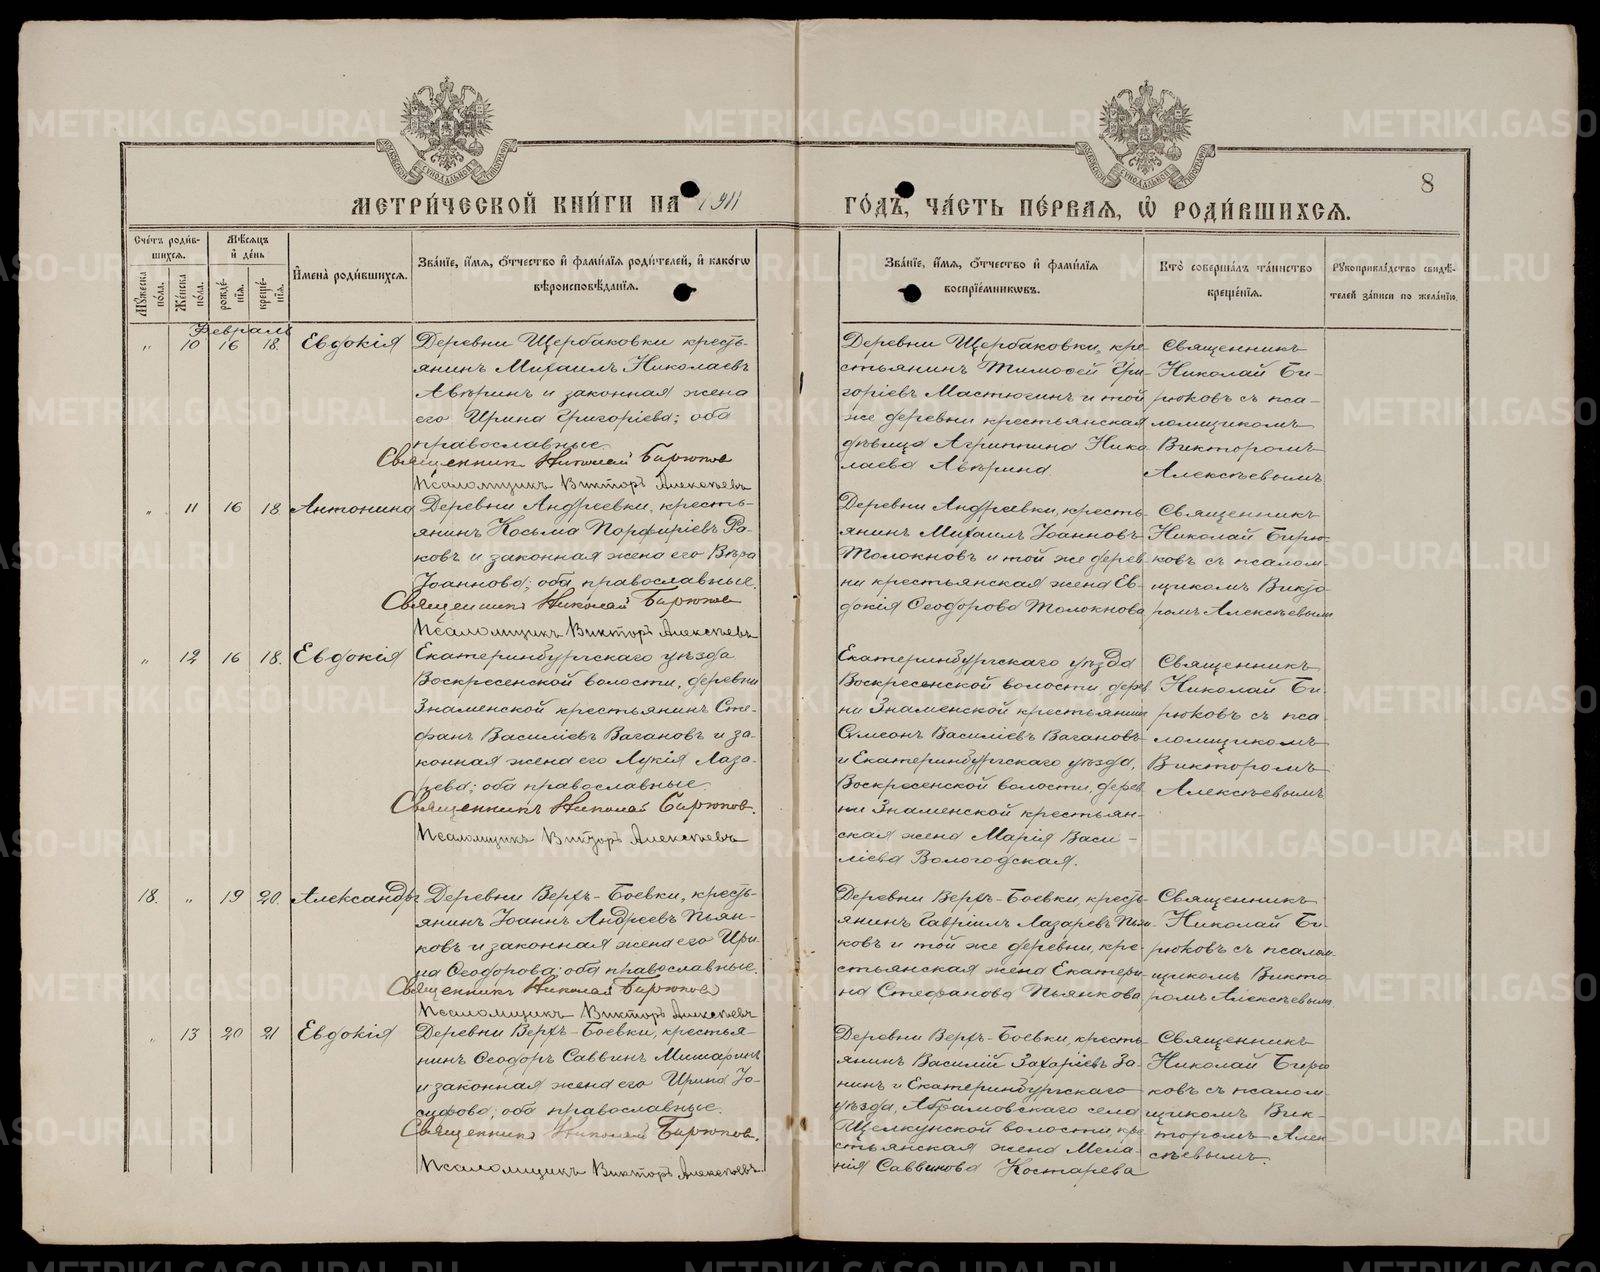 МЕТРИ́ЧЕСКОЙ КНИ́ГИ НА 1911 ГО́ДЪ, ЧА́СТЬ ПЕ́РВАѦ, Ѡ҆ РОДИ́ВШИХСѦ.
8
Сче́тъ роди́вшихсѧ.
Мꙋ́жеска по́ла.
Же́нска по́ла.
Мѣ́сѧцъ и҆ де́нь
рожде́нїѧ.
креще́нїѧ.
И҆мена̀ роди́вшихсѧ.
Зва́нїе, и҆́мѧ, ѻ҆́тчество и҆ фами́лїѧ роди́телей, и҆ како́гѡ
вѣроисповѣ́данїѧ.
Зва́нїе, и҆́мѧ, ѻ҆́тчество и҆ фами́лїѧ
воспрїе́мникѡвъ.
Кто̀ соверша́лъ та́инство
креще́нїѧ.
Рꙋкоприкла́дство свидѣ́-
телей за́писи по жела́нїю.
Февраль
„ 10 16 18. Евдокія
Деревни Щербаковки кресть-
янинъ Михаилъ Николаевъ
Авѣринъ и законная жена
его Ирина Григоріева; оба
православные.
Священникъ Николай Бирюковъ
Псаломщикъ Викторъ Алексѣевъ
Деревни Щербаковки, кре-
стьянинъ Тимоѳей Гри-
горіевъ Мастюгинъ и той
же деревни крестьянская
дѣвица Агриппина Нико
лаева Авѣрина
Священникъ
Николай Би-
рюковъ съ пса-
ломщикомъ
Викторомъ
Алексѣевымъ
„ 11 16 18. Антонина
Деревни Андреевки, кресть-
янинъ Косьма Порфиріевъ Ро-
ковъ и законная жена его Вѣра
Іоаннова; оба православные.
Священникъ Николай Бирюковъ
Псаломщикъ Викторъ Алексѣевъ
Деревни Андреевки, кресть-
янинъ Михаилъ Іоанновъ
Толокновъ и той же дерев
ни крестьянская жена Ев-
докія Ѳеодорова Толокнова
Священникъ
Николай Бирю-
ковъ съ псалом-
щикомъ Викто
ромъ Алексѣевымъ
„ 12 16 18. Евдокія
Екатеринбургскаго уѣзда
Воскресенской волости, деревни
Знаменской крестьянинъ Сте-
фанъ Василіевъ Вагановъ и за-
конная жена его Лукія Лаза-
рева; оба православные.
Священникъ Николай Бирюковъ.
Псаломщикъ Викторъ Алексѣевъ
Екатеринбургскаго уѣзда
Воскресенской волости, дерев
ни Знаменской крестьянинъ
Сѵмеонъ Василіевъ Вагановъ
и Екатеринбургскаго уѣзда,
Воскресенской волости, дерев
ни Знаменской крестьян-
ская жена Марія Васи-
ліева Вологодская.
Священникъ
Николай Би-
рюковъ съ пса-
ломщикомъ
Викторомъ
Алексѣевымъ
18. „ 19 20. Александръ
Деревни Верхъ-Боевки, кресть-
янинъ Іоаннъ Андреевъ Пьян-
ковъ и законная жена его Ири
на Ѳеодорова; оба православные.
Священникъ Николай Бирюковъ
Псаломщикъ Викторъ Алексѣевъ
Деревни Верхъ-Боевки, кресть
янинъ Гавріилъ Лазаревъ Пьян-
ковъ и той же деревни, кре-
стьянская жена Екатери-
на Стефанова Пьянкова
Священникъ
Николай Би-
рюковъ съ псалом
щикомъ Викто
ромъ Алексѣевымъ
„ 13 20 21 Евдокія
Деревни Верхъ-Боевки, крестья-
нинъ Ѳеодоръ Саввинъ Мишаринъ
и законная жена его Ирина Іо-
сифова; оба православные.
Священникъ Николай Бирюковъ.
Псаломщикъ Викторъ Алексѣевъ.
Деревни Верхъ-Боевки, кресть-
янинъ Василій Захаріевъ За-
нинъ и Екатеринбургскаго
уѣзда, Абрамовскаго села
Щелкунской волости, кре
стьянская жена Мела-
нія Саввинова Костарева
Священникъ
Николай Бирю
ковъ съ псалом-
щикомъ Вик-
торомъ Алек-
сѣевымъ.
METRIKI.GASO-URAL.RU